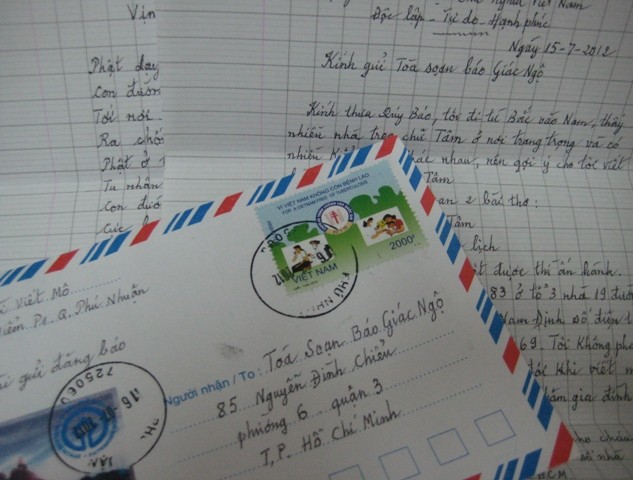 Vin
nghĩa Việt Nam
Độc lập - Tự do - Hạnh phúc
Ngày 15-7-2012
Kính gửi Toà soạn báo Giác Ngộ
Kính thưa Quý Báo, tôi đi từ Bắc vào Nam, thấy
nhiều nhà treo chữ Tâm ở nơi trang trọng và có
nhiều khác nhau, nên gợi ý cho tôi viết
Tâm
an 2 bài thơ:
Tâm
lịch
được thi ấn hành.
83 ở tổ 3 nhà 19 đườ
Nam Định số điện t
69. Tôi không ph
tôi khi viết m
gia đình
số nhà
HCM
Phật dạy
Con đườn
Tới nơi
Ra chố
Phật ở
Tu nhân
Con đườ
Cực
VÌ VIỆT NAM KHÔNG CÒN BỆNH LAO
FOR A VIETNAM FREE OF TUBERCULOSIS
VIỆT NAM
2000đ
PHÚ NH
Viết Mô
iểm Ps. Q. Phú Nhuận
i gửi đăng báo
725060
Người nhận / To: Toà Soạn Báo Giác Ngộ
85 Nguyễn Đình Chiểu
phường 6 - quận 3
T.P. Hồ Chí Minh